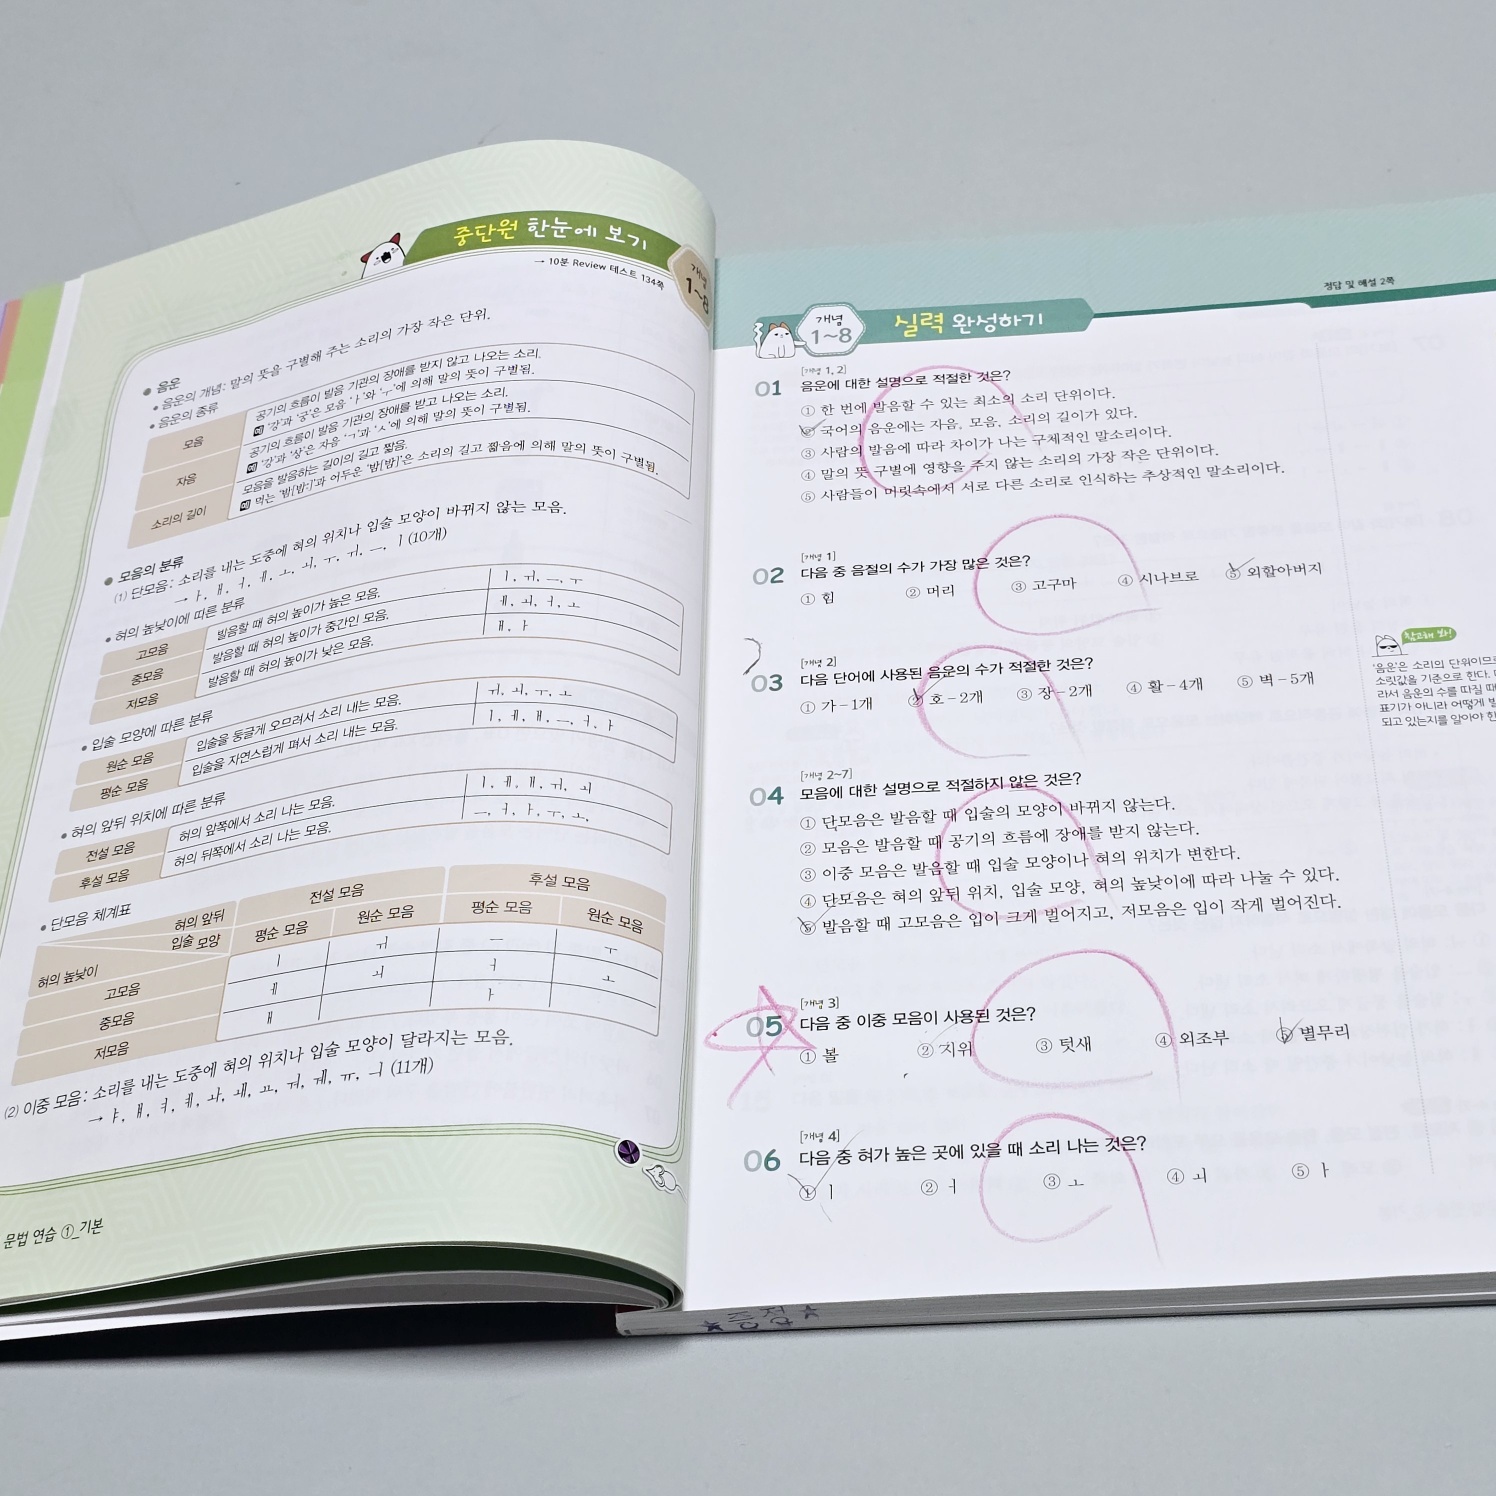 중단원 한눈에 보기
→ 10분 Review 테스트 134쪽
개념
1~8
● 음운
• 음운의 개념: 말의 뜻을 구별해 주는 소리의 가장 작은 단위.
• 음운의 종류
모음
공기의 흐름이 발음 기관의 장애를 받지 않고 나오는 소리.
예 '강'과 '궁'은 모음 'ㅏ'와 'ㅜ'에 의해 말의 뜻이 구별됨.
자음
공기의 흐름이 발음 기관의 장애를 받고 나오는 소리.
예 '강'과 '상'은 자음 'ㄱ'과 'ㅅ'에 의해 말의 뜻이 구별됨.
소리의 길이
모음을 발음하는 길이의 길고 짧음.
예 먹는 '밤[밤ː]'과 어두운 '밤[밤]'은 소리의 길고 짧음에 의해 말의 뜻이 구별됨.
● 모음의 분류
(1) 단모음: 소리를 내는 도중에 혀의 위치나 입술 모양이 바뀌지 않는 모음.
→ ㅏ, ㅐ, ㅓ, ㅔ, ㅗ, ㅚ, ㅜ, ㅟ, ㅡ, ㅣ(10개)
• 혀의 높낮이에 따른 분류
고모음 발음할 때 혀의 높이가 높은 모음. ㅣ, ㅟ, ㅡ, ㅜ
중모음 발음할 때 혀의 높이가 중간인 모음. ㅔ, ㅚ, ㅓ, ㅗ
저모음 발음할 때 혀의 높이가 낮은 모음. ㅐ, ㅏ
• 입술 모양에 따른 분류
원순 모음 입술을 둥글게 오므려서 소리 내는 모음. ㅟ, ㅚ, ㅜ, ㅗ
평순 모음 입술을 자연스럽게 펴서 소리 내는 모음. ㅣ, ㅔ, ㅐ, ㅡ, ㅓ, ㅏ
• 혀의 앞뒤 위치에 따른 분류
전설 모음 혀의 앞쪽에서 소리 나는 모음. ㅣ, ㅔ, ㅐ, ㅟ, ㅚ
후설 모음 혀의 뒤쪽에서 소리 나는 모음. ㅡ, ㅓ, ㅏ, ㅜ, ㅗ
• 단모음 체계표
혀의 앞뒤 전설 모음 후설 모음
입술 모양 평순 모음 원순 모음 평순 모음 원순 모음
혀의 높낮이
고모음 ㅣ ㅟ ㅡ ㅜ
중모음 ㅔ ㅚ ㅓ ㅗ
저모음 ㅐ ㅏ
(2) 이중 모음: 소리를 내는 도중에 혀의 위치나 입술 모양이 달라지는 모음.
→ ㅑ, ㅒ, ㅕ, ㅖ, ㅘ, ㅙ, ㅛ, ㅝ, ㅞ, ㅠ, ㅢ (11개)
문법 연습 ①_기본
정답 및 해설 2쪽
개념
1~8
실력 완성하기
[개념 1, 2]
01 음운에 대한 설명으로 적절한 것은?
① 한 번에 발음할 수 있는 최소의 소리 단위이다.
② 국어의 음운에는 자음, 모음, 소리의 길이가 있다.
③ 사람의 발음에 따라 차이가 나는 구체적인 말소리이다.
④ 말의 뜻 구별에 영향을 주지 않는 소리의 가장 작은 단위이다.
⑤ 사람들이 머릿속에서 서로 다른 소리로 인식하는 추상적인 말소리이다.
[개념 1]
02 다음 중 음절의 수가 가장 많은 것은?
① 힘 ② 머리 ③ 고구마 ④ 시나브로 ⑤ 외할아버지
[개념 2]
03 다음 단어에 사용된 음운의 수가 적절한 것은?
① 가 – 1개 ② 호 – 2개 ③ 장 – 2개 ④ 활 – 4개 ⑤ 벽 – 5개
참고해 봐!
'음운'은 소리의 단위이므로
소릿값을 기준으로 한다.
라서 음운의 수를 따질 때
표기가 아니라 어떻게
되고 있는지를 알아야
[개념 2~7]
04 모음에 대한 설명으로 적절하지 않은 것은?
① 단모음은 발음할 때 입술의 모양이 바뀌지 않는다.
② 모음은 발음할 때 공기의 흐름에 장애를 받지 않는다.
③ 이중 모음은 발음할 때 입술 모양이나 혀의 위치가 변한다.
④ 단모음은 혀의 앞뒤 위치, 입술 모양, 혀의 높낮이에 따라 나눌 수 있다.
⑤ 발음할 때 고모음은 입이 크게 벌어지고, 저모음은 입이 작게 벌어진다.
[개념 3]
05 다음 중 이중 모음이 사용된 것은?
① 볼 ② 지위 ③ 텃새 ④ 외조부 ⑤ 별무리
[개념 4]
06 다음 중 혀가 높은 곳에 있을 때 소리 나는 것은?
① ㅣ ② ㅓ ③ ㅗ ④ ㅚ ⑤ ㅏ